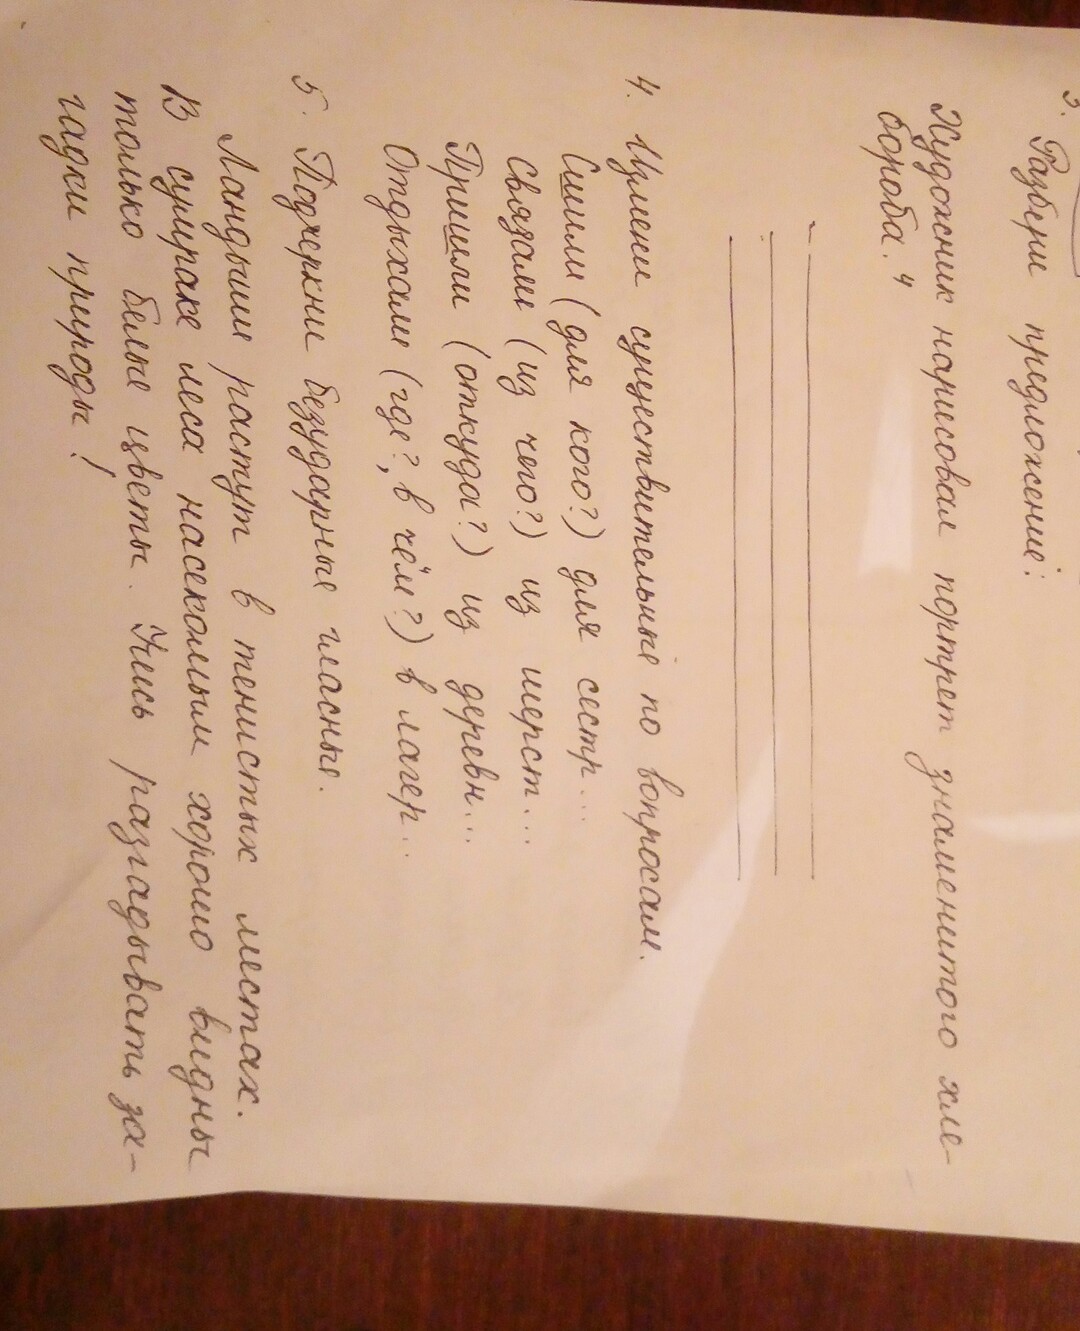 3. Разбери предложение:
Художник нарисовал портрет знаменитого хле-
бороба.⁴
4. Измени существительные по вопросам.
Сшили (для кого?) для сестр...
Связали (из чего?) из шерст...
Пришли (откуда?) из деревн...
Отдыхали (где?, в чём?) в лагер...
5. Подчеркни безударные гласные.
Ландыши растут в тенистых местах.
В сумраке леса насекомым хорошо видны
только белые цветы. Учись разгадывать за-
гадки природы!